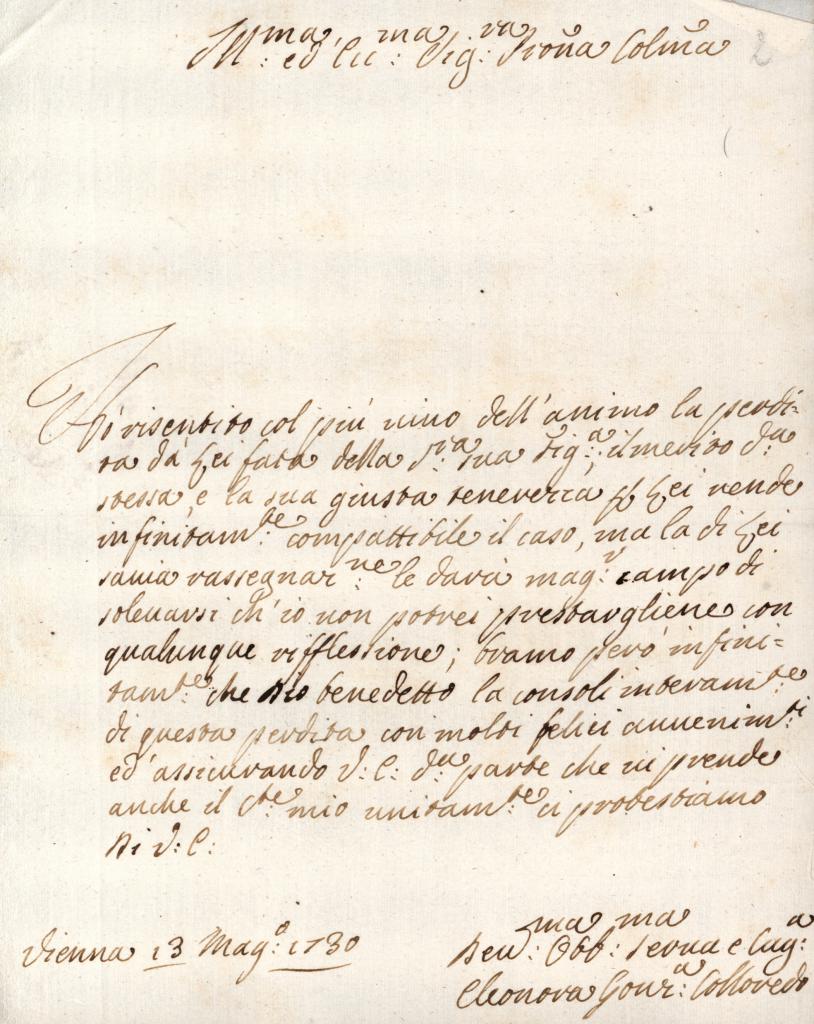 Ill:ma ed Ecc:ma Sig:ra Prona Colma
2
Hò risentito col più uiuo dell'animo la perdi=
ta dà Lei fata della S:ra sua Sig:a, il merito d:a
stessa, e la sua giusta tenerezza p Lei rende
infinitam:te compattibile il caso, ma la di Lei
sauia rassegnar:ne le darà mag:r campo di
soleuarsi ch'io non potrei prestargliene con
qualunque rifflessione; bramo però infini=
tam:te che Dio benedetto la consoli interam:te
di questa perdita con molti felici auuenim:ti
ed'assicurando V: E: d:a parte che ui prende
anche il C:te mio unitam:te ci protestiamo
Di V: E:
Vienna 13 Mag:o 1730
Deu:ma Obb:ma Serua e Cug:a
Eleonora Gonz:a Colloredo